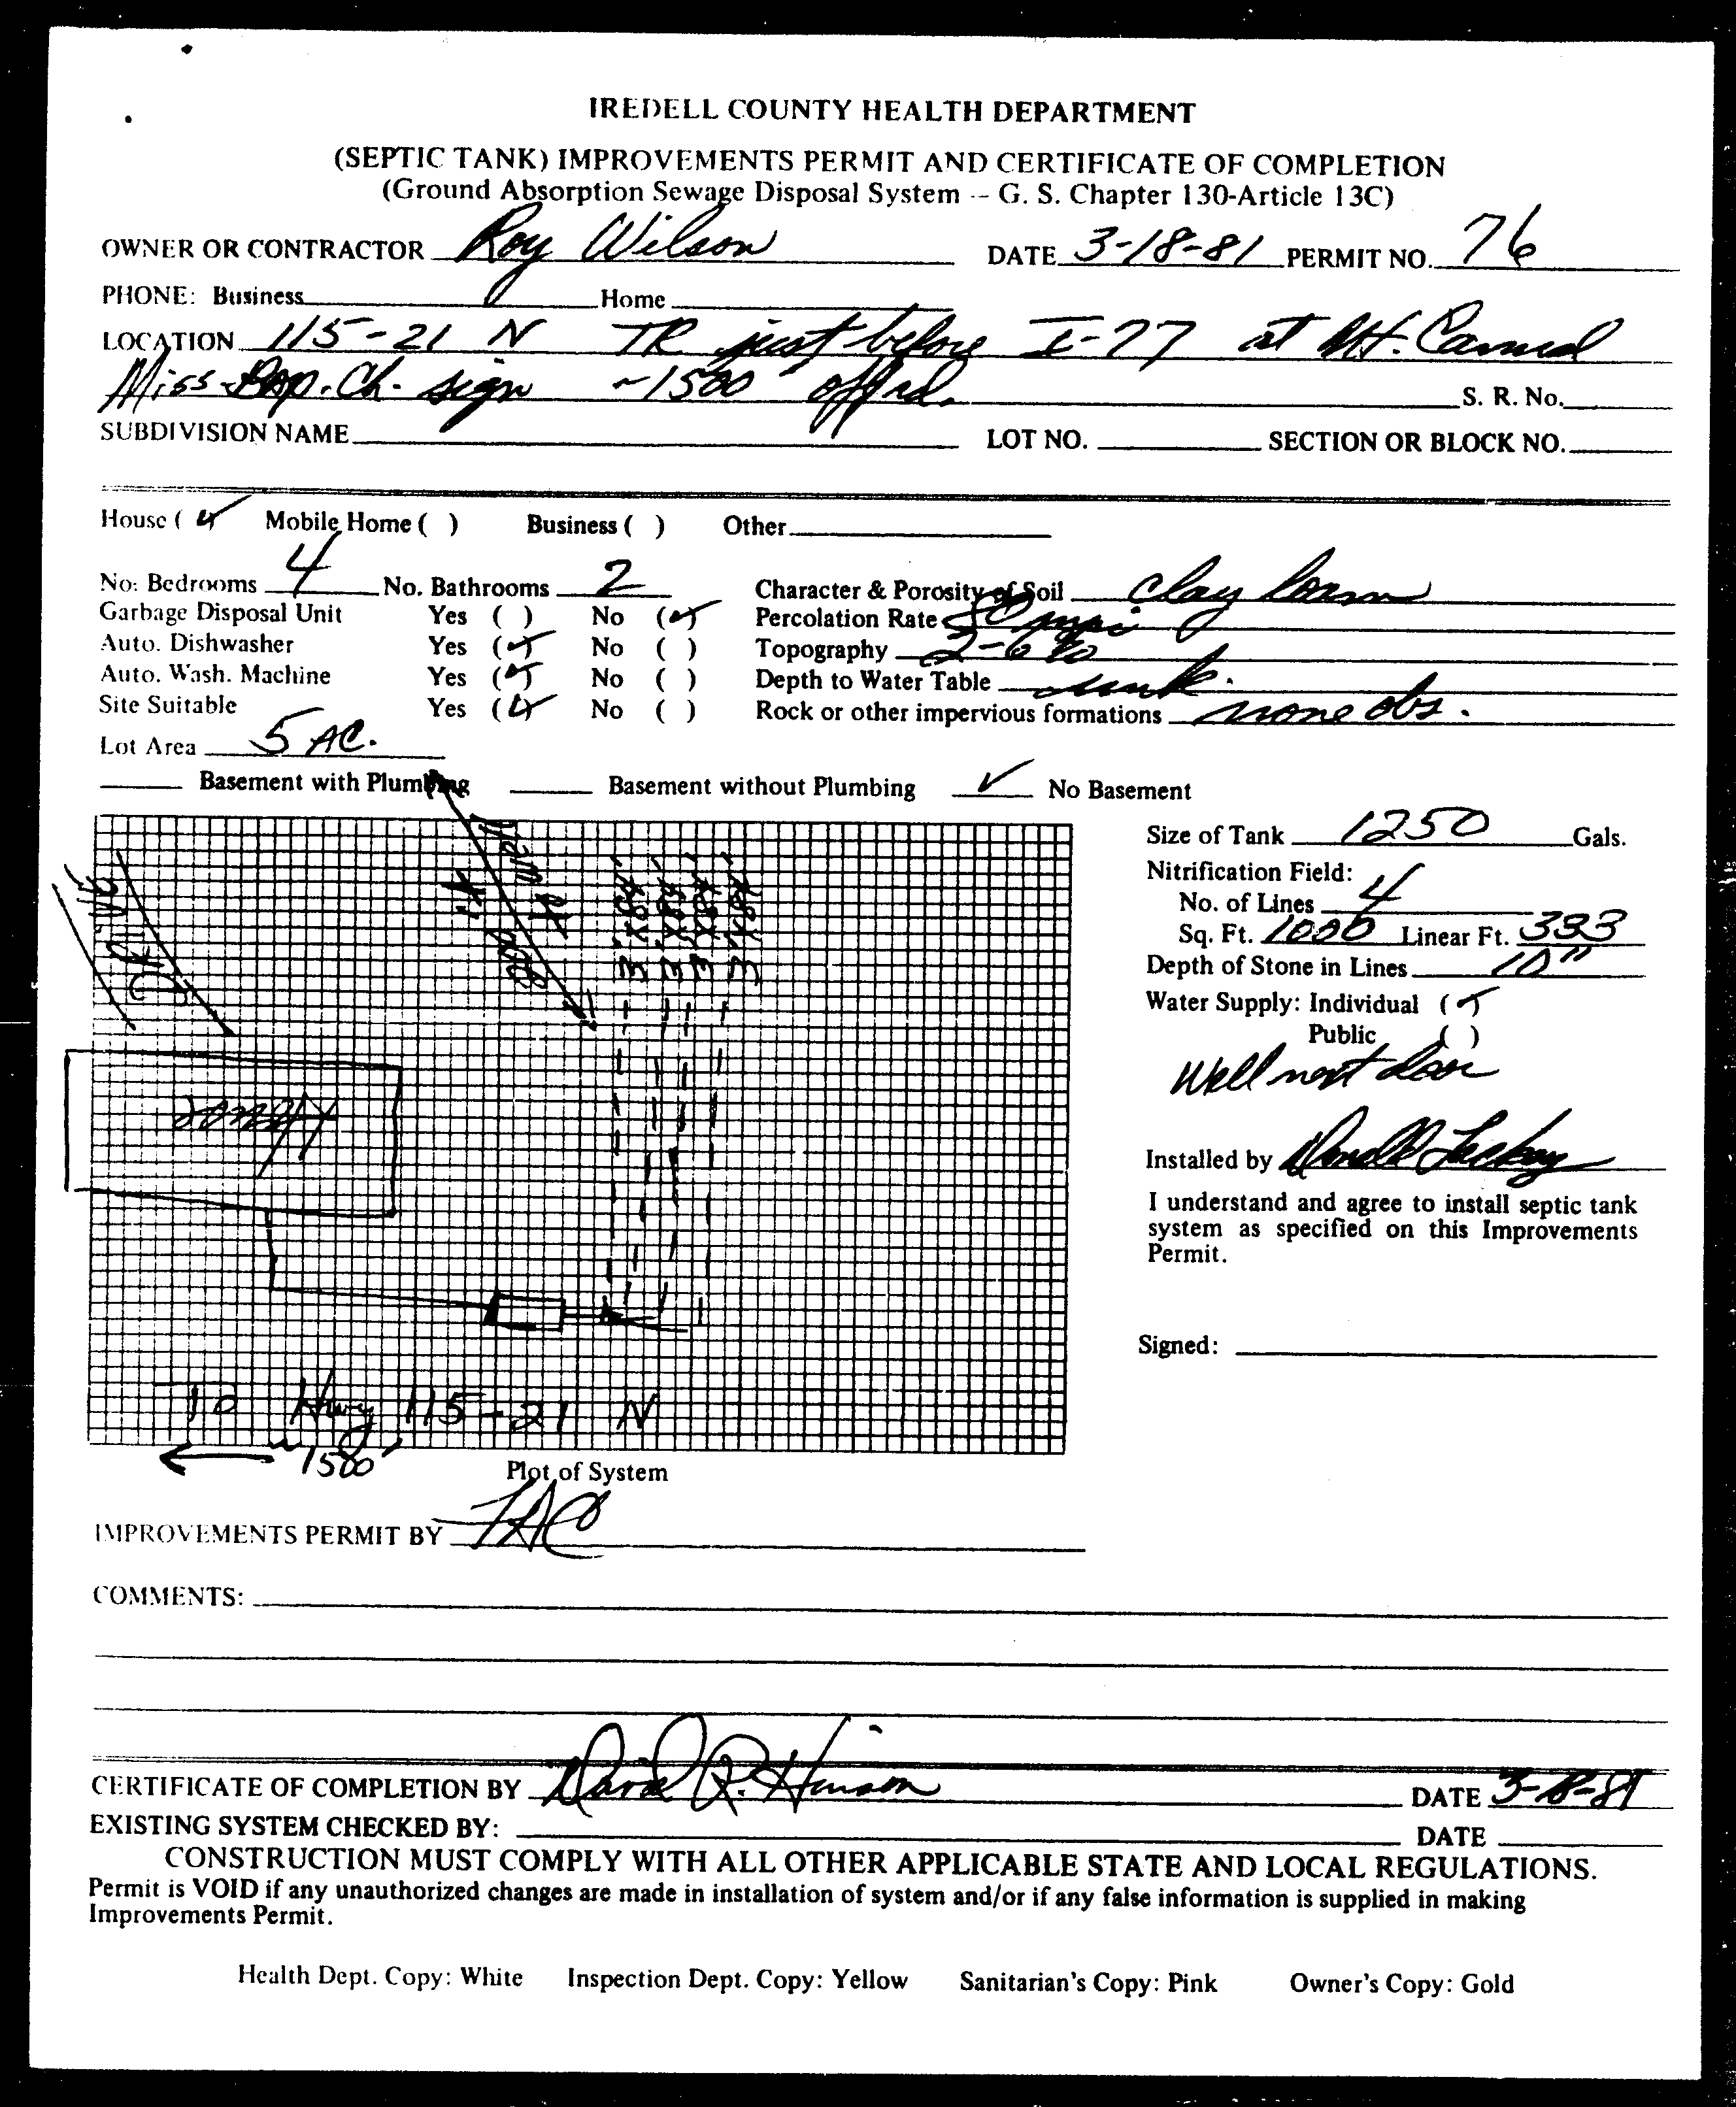 IREDELL COUNTY HEALTH DEPARTMENT
(SEPTIC TANK) IMPROVEMENTS PERMIT AND CERTIFICATE OF COMPLETION
(Ground Absorption Sewage Disposal System -- G. S. Chapter 130-Article 13C)
OWNER OR CONTRACTOR Roy Wilson DATE 3-18-81 PERMIT NO. 76
PHONE: Business Home
LOCATION 115-21 N TR just before I-77 at Mt. Carmel
Miss. Bap. Ch. sign ~1500' off rd. S. R. No.
SUBDIVISION NAME LOT NO. SECTION OR BLOCK NO.
House (✓) Mobile Home ( ) Business ( ) Other
No: Bedrooms 4 No. Bathrooms 2 Character & Porosity of Soil clay loam
Garbage Disposal Unit Yes ( ) No (✓) Percolation Rate mpi
Auto. Dishwasher Yes (✓) No ( ) Topography 2-6%
Auto. Wash. Machine Yes (✓) No ( ) Depth to Water Table unk.
Site Suitable Yes (✓) No ( ) Rock or other impervious formations none obs.
Lot Area 5 AC.
Basement with Plumbing Basement without Plumbing ✓ No Basement
Size of Tank 1250 Gals.
Nitrification Field:
No. of Lines 4
Sq. Ft. 1000 Linear Ft. 333
Depth of Stone in Lines 10"
Water Supply: Individual (✓)
Public ( )
Well next door
Installed by
I understand and agree to install septic tank
system as specified on this Improvements
Permit.
Signed:
Drive
House
To Hwy 115-21 N
~1500'
Plot of System
IMPROVEMENTS PERMIT BY
COMMENTS:
CERTIFICATE OF COMPLETION BY David R. Hinson DATE 3-18-81
EXISTING SYSTEM CHECKED BY: DATE
CONSTRUCTION MUST COMPLY WITH ALL OTHER APPLICABLE STATE AND LOCAL REGULATIONS.
Permit is VOID if any unauthorized changes are made in installation of system and/or if any false information is supplied in making
Improvements Permit.
Health Dept. Copy: White Inspection Dept. Copy: Yellow Sanitarian's Copy: Pink Owner's Copy: Gold